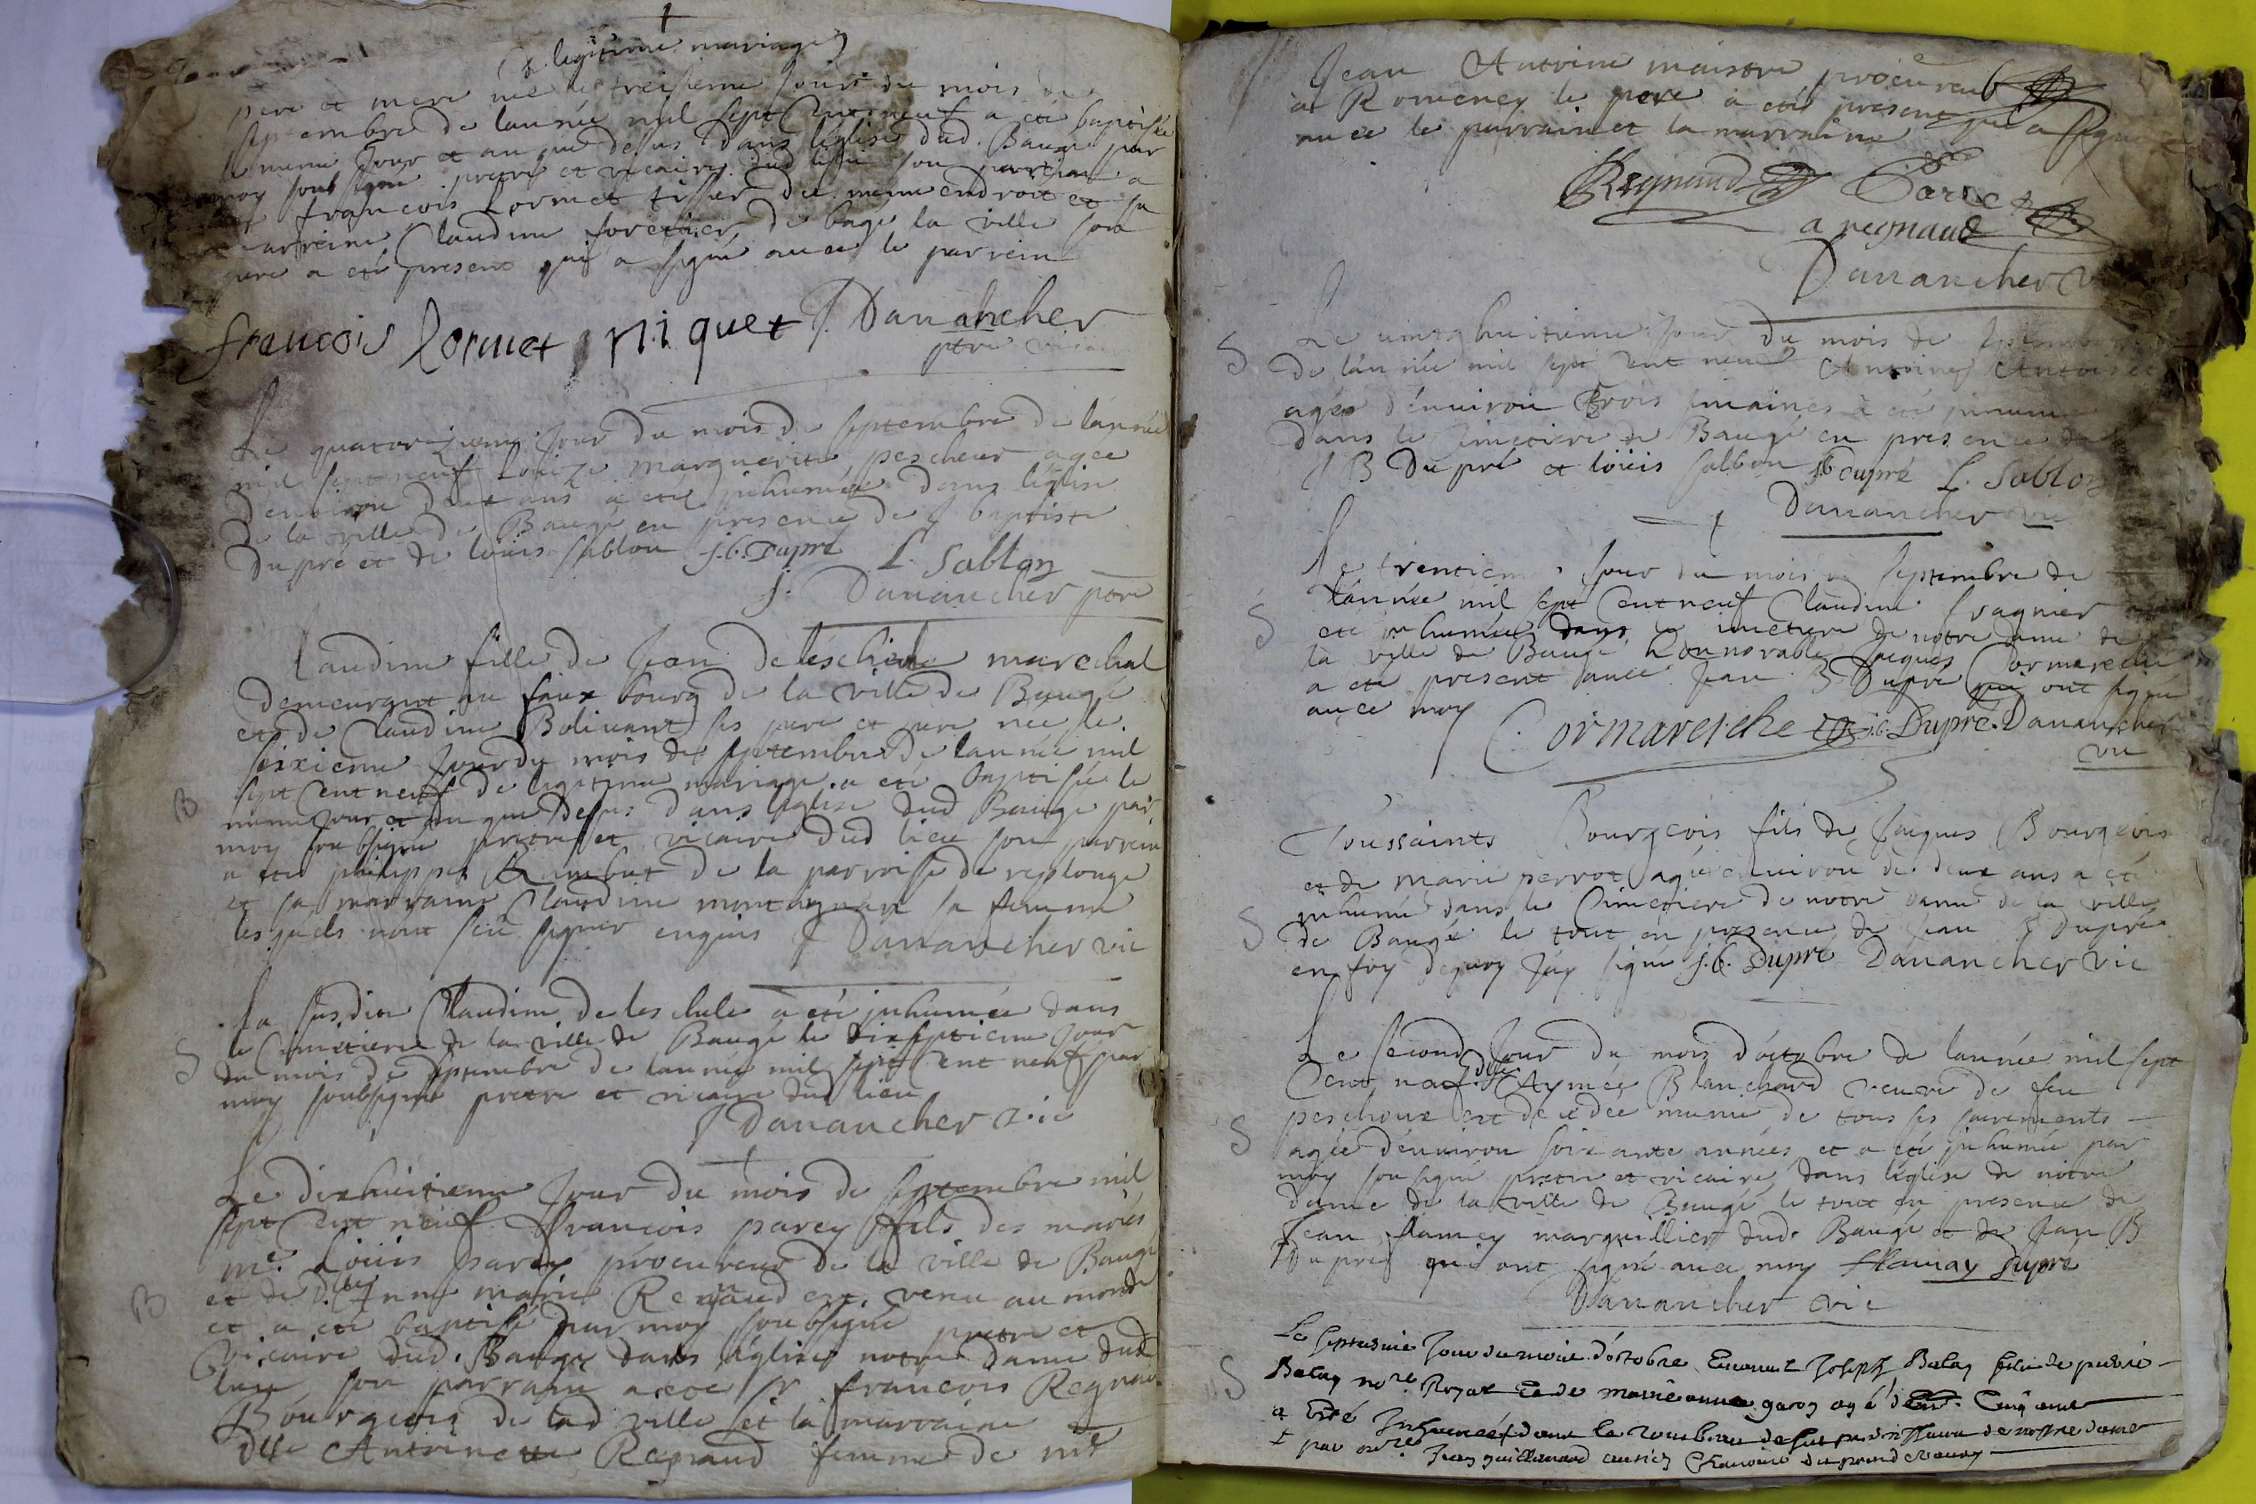 de legitime mariage
pere et mere née le treisieme jour du mois de
septembre de lannée mil sept cent neuf a eté baptisée
le meme jour et an que desus dans leglise dud. Baugé par
moy soubsigné pretre et vicaire dud lieu son parrain a
francois Lormet tissier du meme endroit et sa
marreine Claudine forestier de bagé la ville son
pere a eté present qui a signé avec le parrein
francois lormet niquet J. Danancher
ptre vicaire
Le quatorzieme jour du mois de septembre de lannée
mil sept neuf Louize marguerite pescheur agee
denviron deux ans a eté inhumée dans léglise
de la ville de Baugé en presence de J baptiste
Dupré et de loüis sablon j.b. Dupré L. Sablon
J. Danancher ptre
Claudine fille de Jean deleschele marechal
demeurant au faux bourg de la ville de Baugé
et de Claudine Bolivent ses pere et mere née le
seixieme jour du mois de septembre de lannée mil
sept cent neuf de legitime mariage a eté baptisée le
B
meme jour et an que desus dans leglise dud Baugé par
moy soubsigné pretre et vicaire dud lieu son parrein
a eté philippes Rambut de la parroisse de replonge
et sa marraine Claudine montagnan sa femme
lesquels nont sceu signer enquis J Danancher vic
La susdite Claudine deleschele a eté inhumée dans
S
le Cimetiere de la ville de Baugé le dixseptieme jour
du mois de septembre de lannée mil sept cent neuf par
moy soubsigné pretre et vicaire dud lieu
J Danancher vic
Le dixhuitieme jour du mois de septembre mil
sept cent neuf francois parey fils des mariés
me. Loüis parey procureur de la ville de Baugé
B
et de dlle Anne marie Renaud est venu au monde
et a eté baptisé par moy soubsigné pretre et
vicaire dud. Baugé dans léglise notre dame dud
lieu son parrain a eté Sr francois Regnaud
Bourgeois de lad ville et la marraine
dlle Antoinette Regnaud femme de mr
Jean Antoine maistre procureur
à Romeney le pere a eté present qui a signé
avec le parrain et la marraine
Regnaud Parey
a regnaud
Danancher vic
Le vingthuitieme jour du mois de septembre
S
de lannée mil sept cent neuf Antoine
agée d'environ trois semaines a eté inhumé
dans le Cimetiere de Baugé en presence de
J B Dupré et loüis sablon jb Dupré L. Sablon
Danancher vic
Le trentieme jour du mois de septembre de
lannée mil sept cent neuf Claudine fragnier
S
eté inhumée dans le cimetiere de notre dame de
la ville de Baugé honnorable Jacques Cormareche
a eté present avec Jean B Dupré qui ont signé
avec moy
Cormareche j.b. Dupré. Danancher
vic
Toussaints Bourgeois fils de Jacques Bourgeois
et de marie perrot agé denviron de deux ans a eté
S
inhumé dans le Cimetiere de notre dame de la ville
de Baugé le tout en presence de Jean B Dupré
en foy dequoy jay signé j.b. Dupré Danancher vic
Le second jour du mois d'octobre de lannée mil sept
Cent neuf dlle Aymée Blanchard veuve de feu
pescheux est decedée munie de tous ses sacrements
S
agée d'environ soixante années et a eté inhumée par
moy sousigné pretre et vicaire dans léglise de notre
dame de la ville de Baugé le tout en presence de
Jean flamey marguillier dud. Baugé et de Jean B
Dupré qui ont signé avec moy flamay Dupré
Danancher vic
Le septiesme jour du mois d'octobre Emanuel Joseph Balay fils de pierre
S
Balay nore. Royal et de marie anne garoz agé d'env. Cinq ans
a esté Inhumé dans le tombeau de de nostre dame
par mre Jean guillemard ancien Chanoine